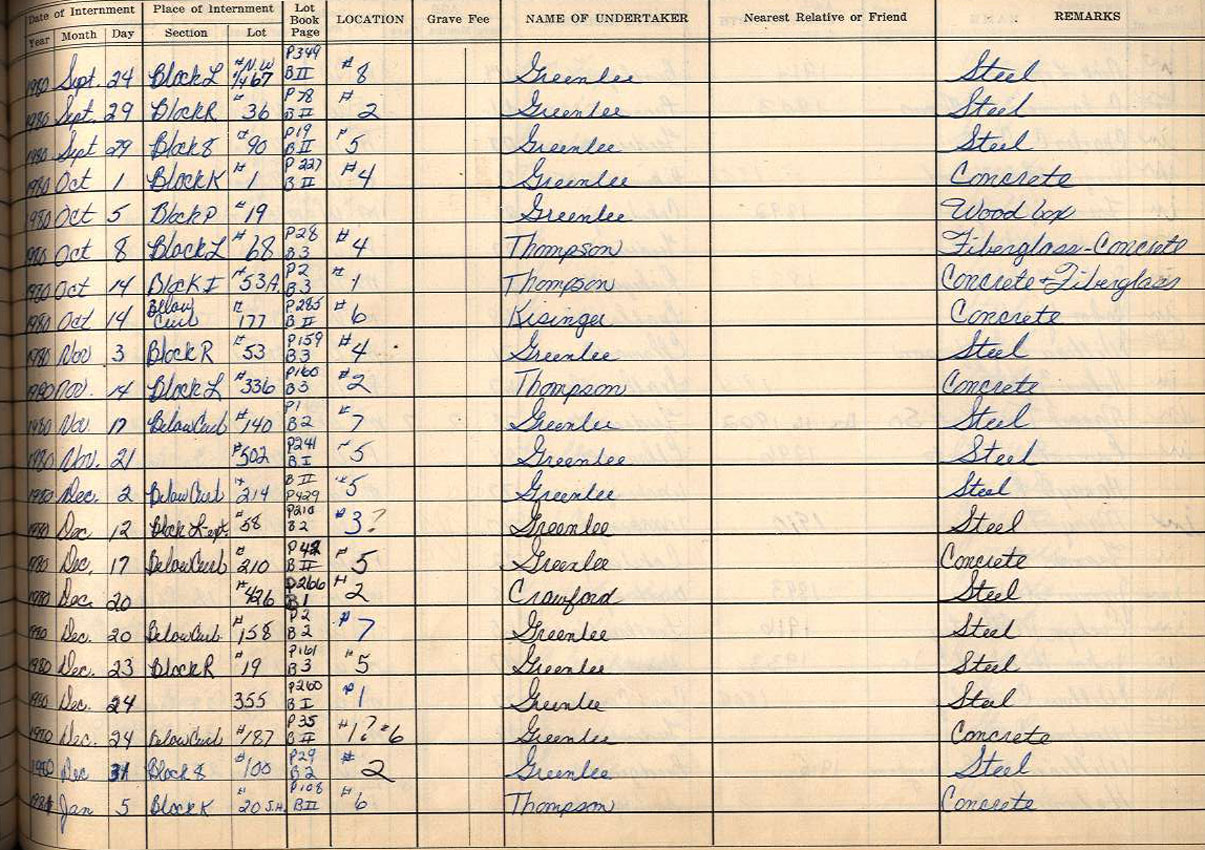 Date of Internment Place of Internment Lot Book Page LOCATION Grave Fee NAME OF UNDERTAKER Nearest Relative or Friend REMARKS
Year Month Day Section Lot
1980 Sept. 24 Block L #N.W 1/467 P349 B II #8 Greenlee Steel
1980 Sept. 29 Block R #36 P78 B II #2 Greenlee Steel
1980 Sept 29 Block 8 #90 P19 B II #5 Greenlee Steel
1980 Oct 1 Block K #1 P227 B II #4 Greenlee Concrete
1980 Oct 5 Block P #19 Greenlee Wood box
1980 Oct 8 Block L #68 P28 B3 #4 Thompson Fiberglass-Concrete
1980 Oct 14 Block I #53A P2 B3 #1 Thompson Concrete + Fiberglass
1980 Oct 14 Below Curb #177 P285 B II #6 Kisinger Concrete
1980 Nov 3 Block R #53 P159 B3 #4 Greenlee Steel
1980 Nov. 14 Block L #336 P160 B3 #2 Thompson Concrete
1980 Nov 17 Below Curb #140 P1 B2 #7 Greenlee Steel
1980 Nov. 21 #502 P241 B I #5 Greenlee Steel
1980 Dec. 2 Below Curb #214 B II P429 #5 Greenlee Steel
1980 Dec, 12 Block L-ept. #58 P210 B2 #3? Greenlee Steel
1980 Dec, 17 Below Curb #210 P42 B II #5 Greenlee Concrete
1980 Dec. 20 #426 P266 B1 #2 Crawford Steel
1980 Dec. 20 Below Curb #158 P2 B2 #7 Greenlee Steel
1980 Dec. 23 Block R #19 P161 B3 #5 Greenlee Steel
1980 Dec. 24 355 P260 B I #1 Greenlee Steel
1980 Dec. 24 Below Curb #187 P35 B II #1? #6 Greenlee Concrete
1980 Dec 31 Block 8 #100 P29 B2 #2 Greenlee Steel
1981 Jan 5 Block K #20 S.H. P108 B II #6 Thompson Concrete